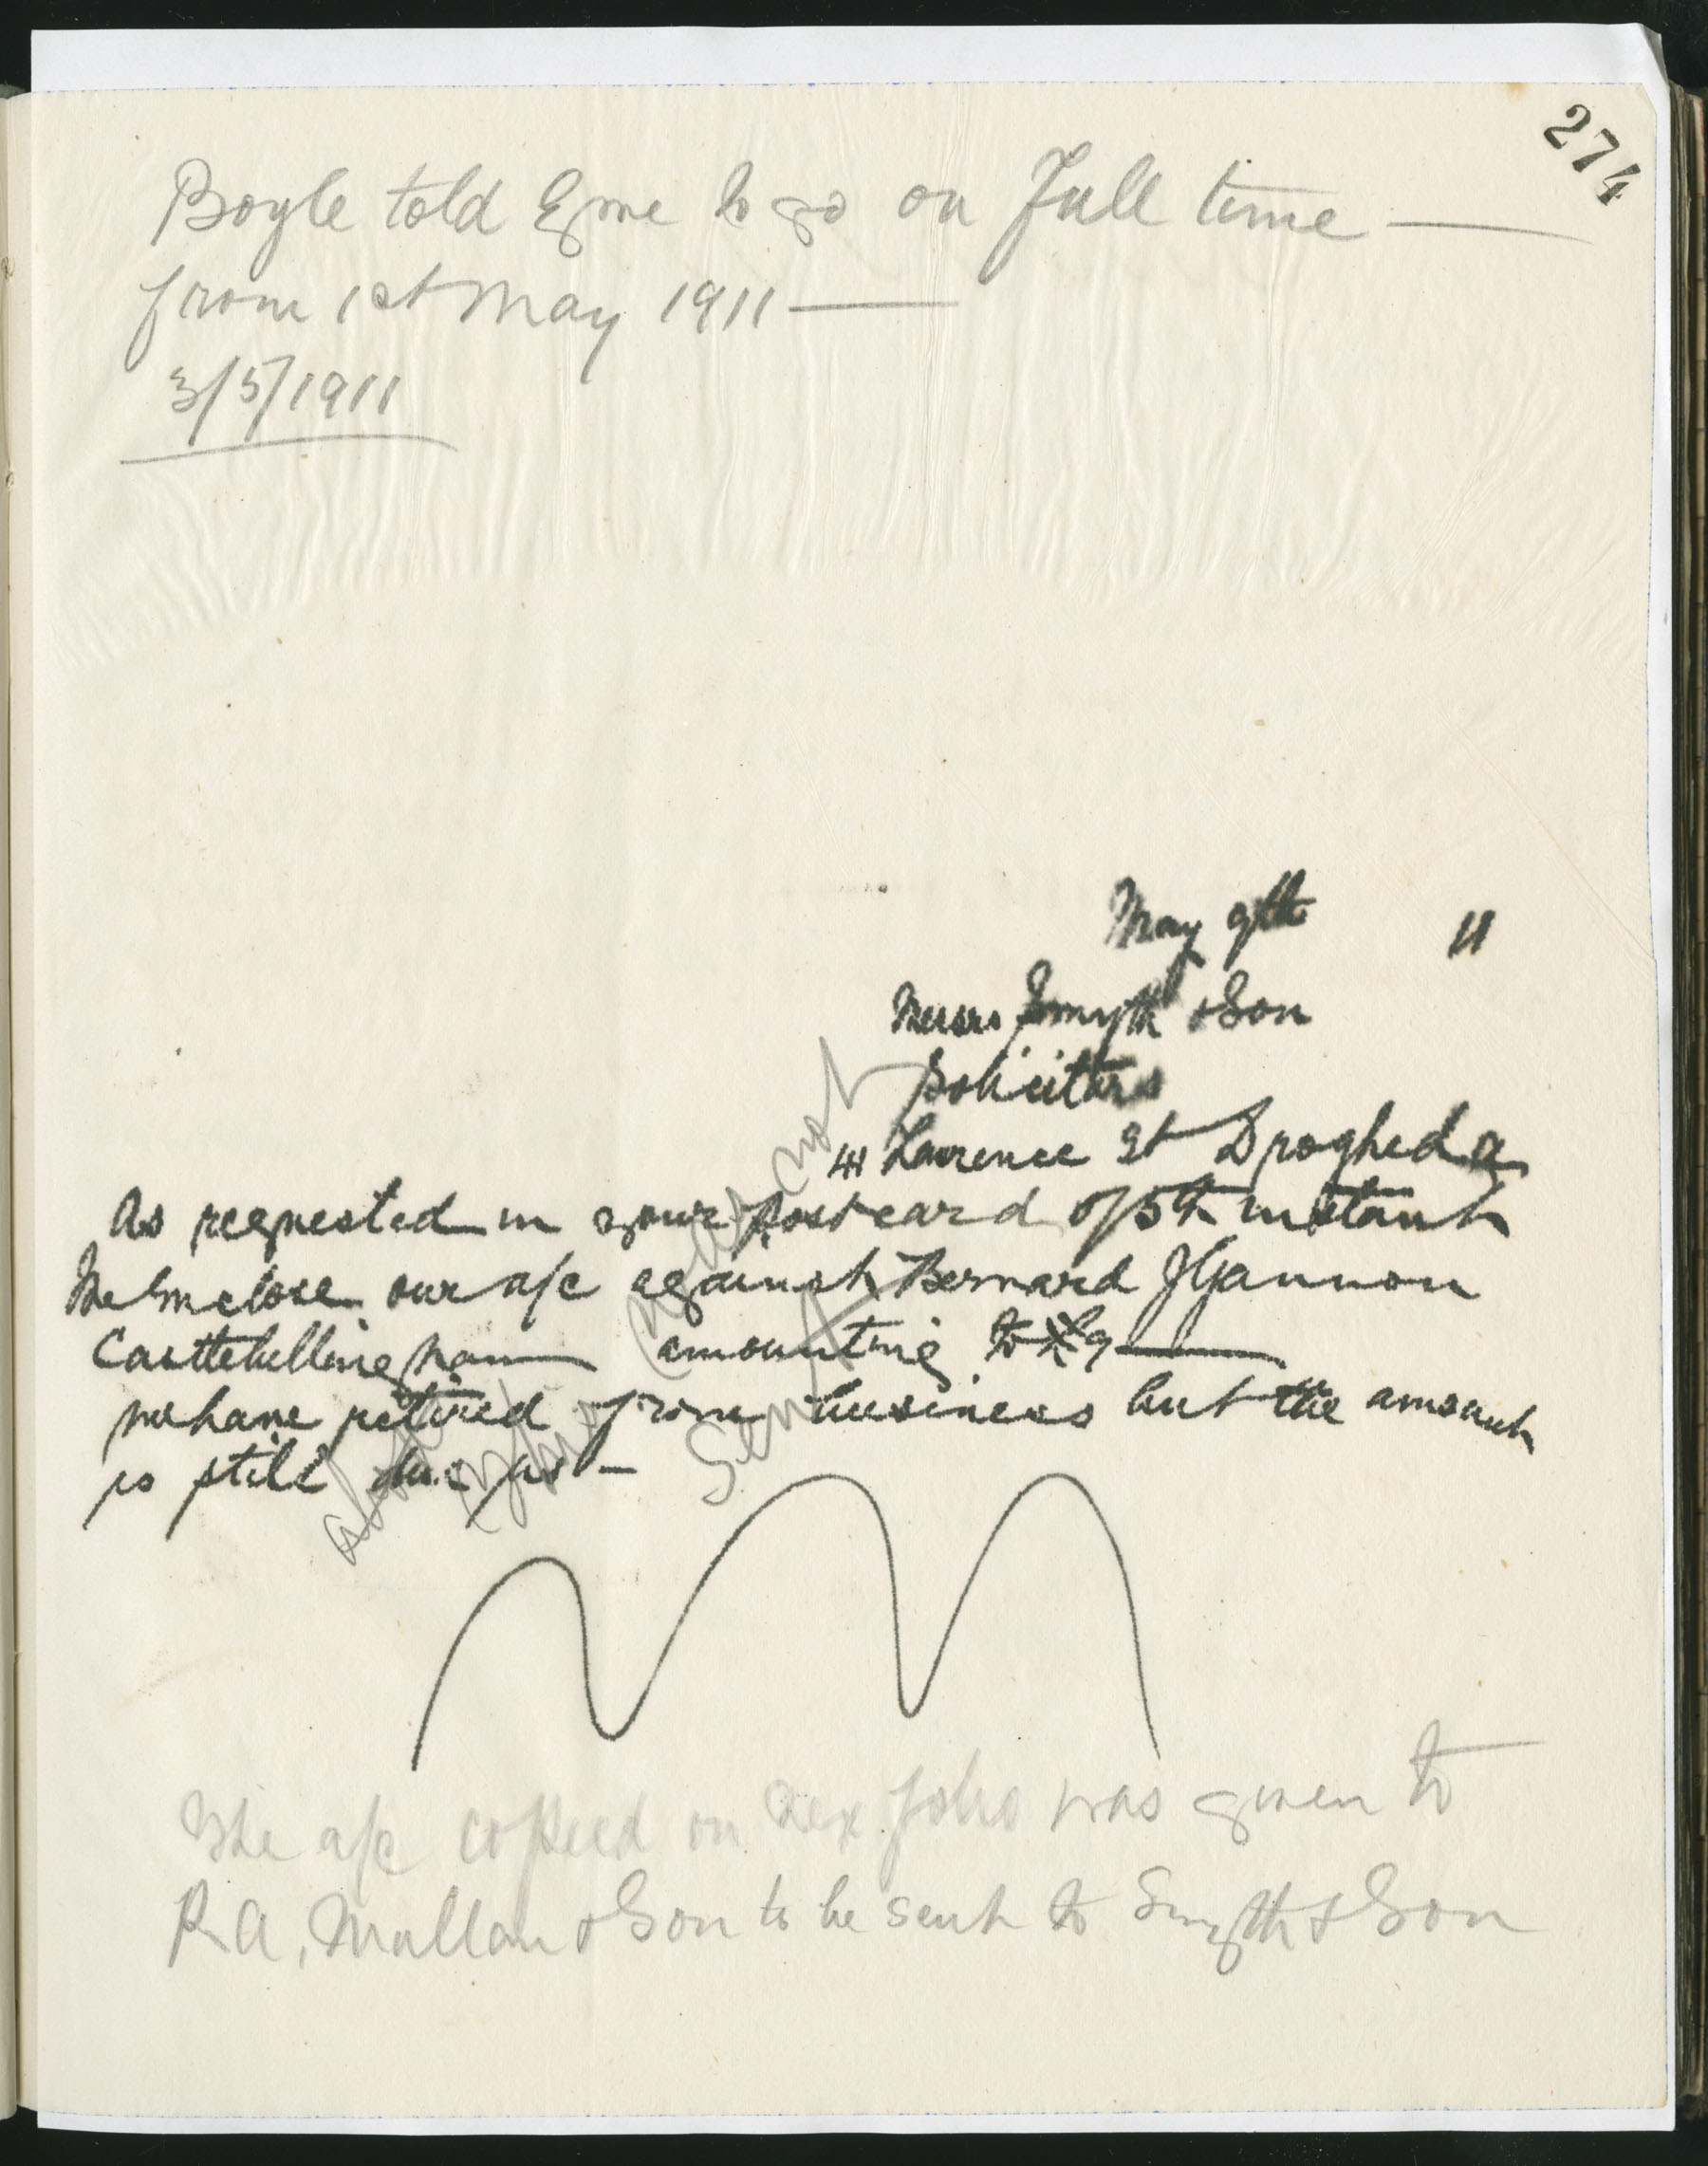 274
Boyle told Eyme to go on Full time —
from 1st May 1911 —
3/5/1911
May 9th 11
Messrs Smyth & Son
Solicitors
Laurence St Drogheda
As requested in your postcard of 5th instant
We Enclose our a/c against Bernard J Gannon
Castlebellingham amounting to £9 —
we have retired from business but the amount
is still due us —
above was not
sent
The a/c copied on nex folio was given to
R.A. Mullan & Son to be sent to Smyth & Son